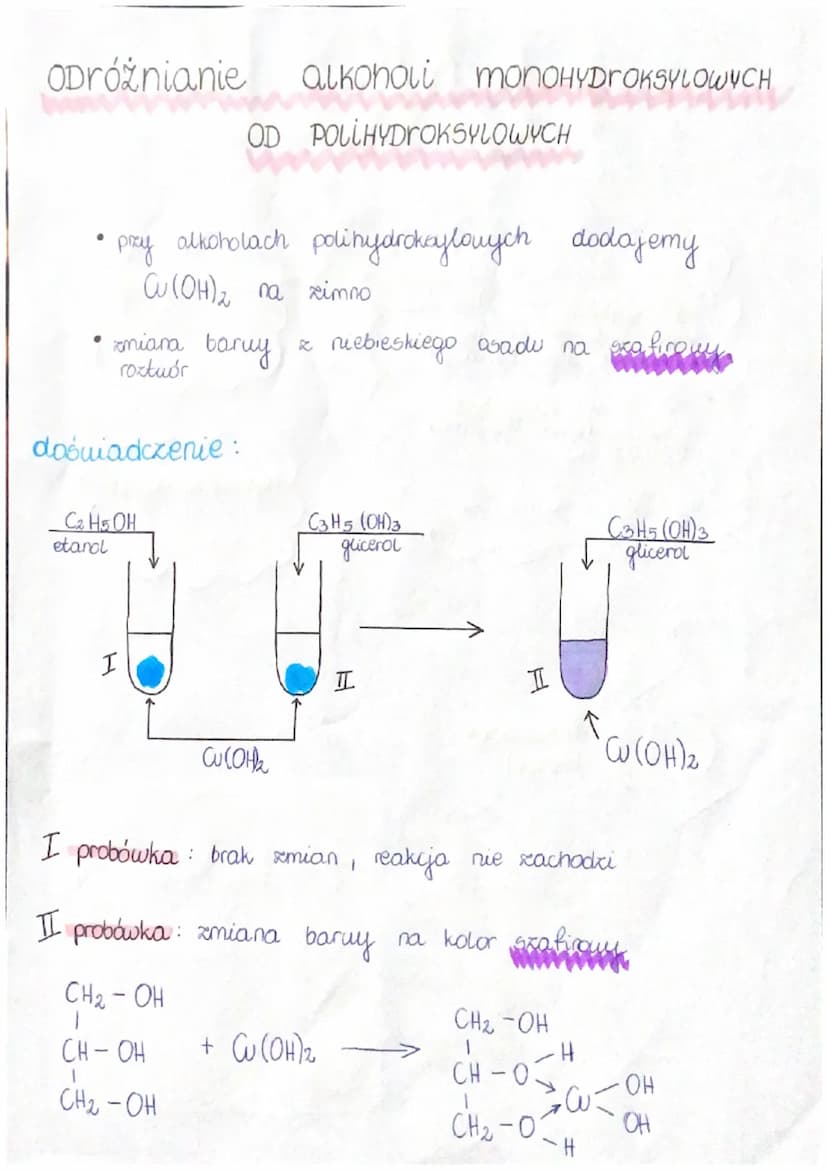 ODróżnianie alkoholi MONOHYDROKSYLOWYCH
OD POLIHYDROKSYLOWYCH
• przy alkoholach polihydroksylowych dodajemy
Cu(OH)₂ na zimno
• zmiana barwy z niebieskiego osadu na szafirowy
roztwór
doświadczenie:
C₂H₅OH
etanol
C₃H₅(OH)₃
glicerol
C₃H₅(OH)₃
glicerol
I
II
II
Cu(OH)₂
Cu(OH)₂
I probówka: brak zmian, reakcja nie zachodzi
II probówka: zmiana barwy na kolor szafirowy
CH₂-OH
CH-OH + Cu(OH)₂ →
CH₂-OH
CH₂-OH
CH-O-H
Cu-OH
OH
CH₂-O-H